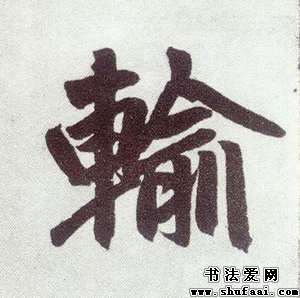 輸
书法爱网
www.shufaai.com